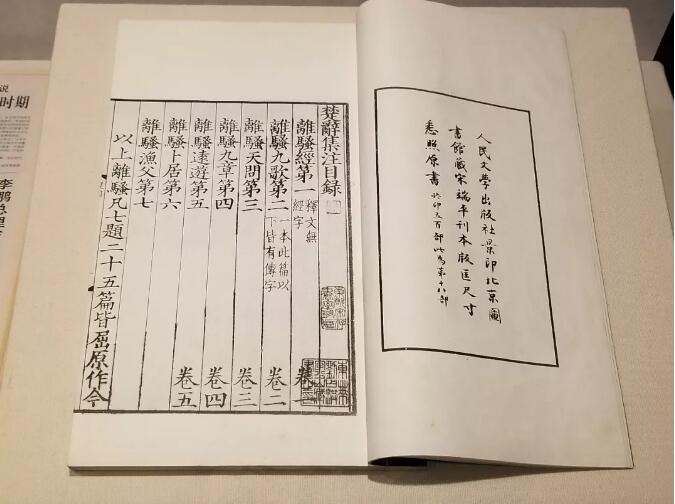 人民文學出版社景印北京圖
書館藏宋端平刊本版匡尺寸
悉照原書共印五百部此為第十八部
楚辭集注目錄
離騷經第一 釋文無 經字 卷一
離騷九歌第二 一本此篇以 下皆有傳字 卷二
離騷天問第三 卷三
離騷九章第四 卷四
離騷遠遊第五 卷五
離騷卜居第六
離騷漁父第七
以上離騷凡七題二十五篇皆屈原作今
说
时期
李鹏总理